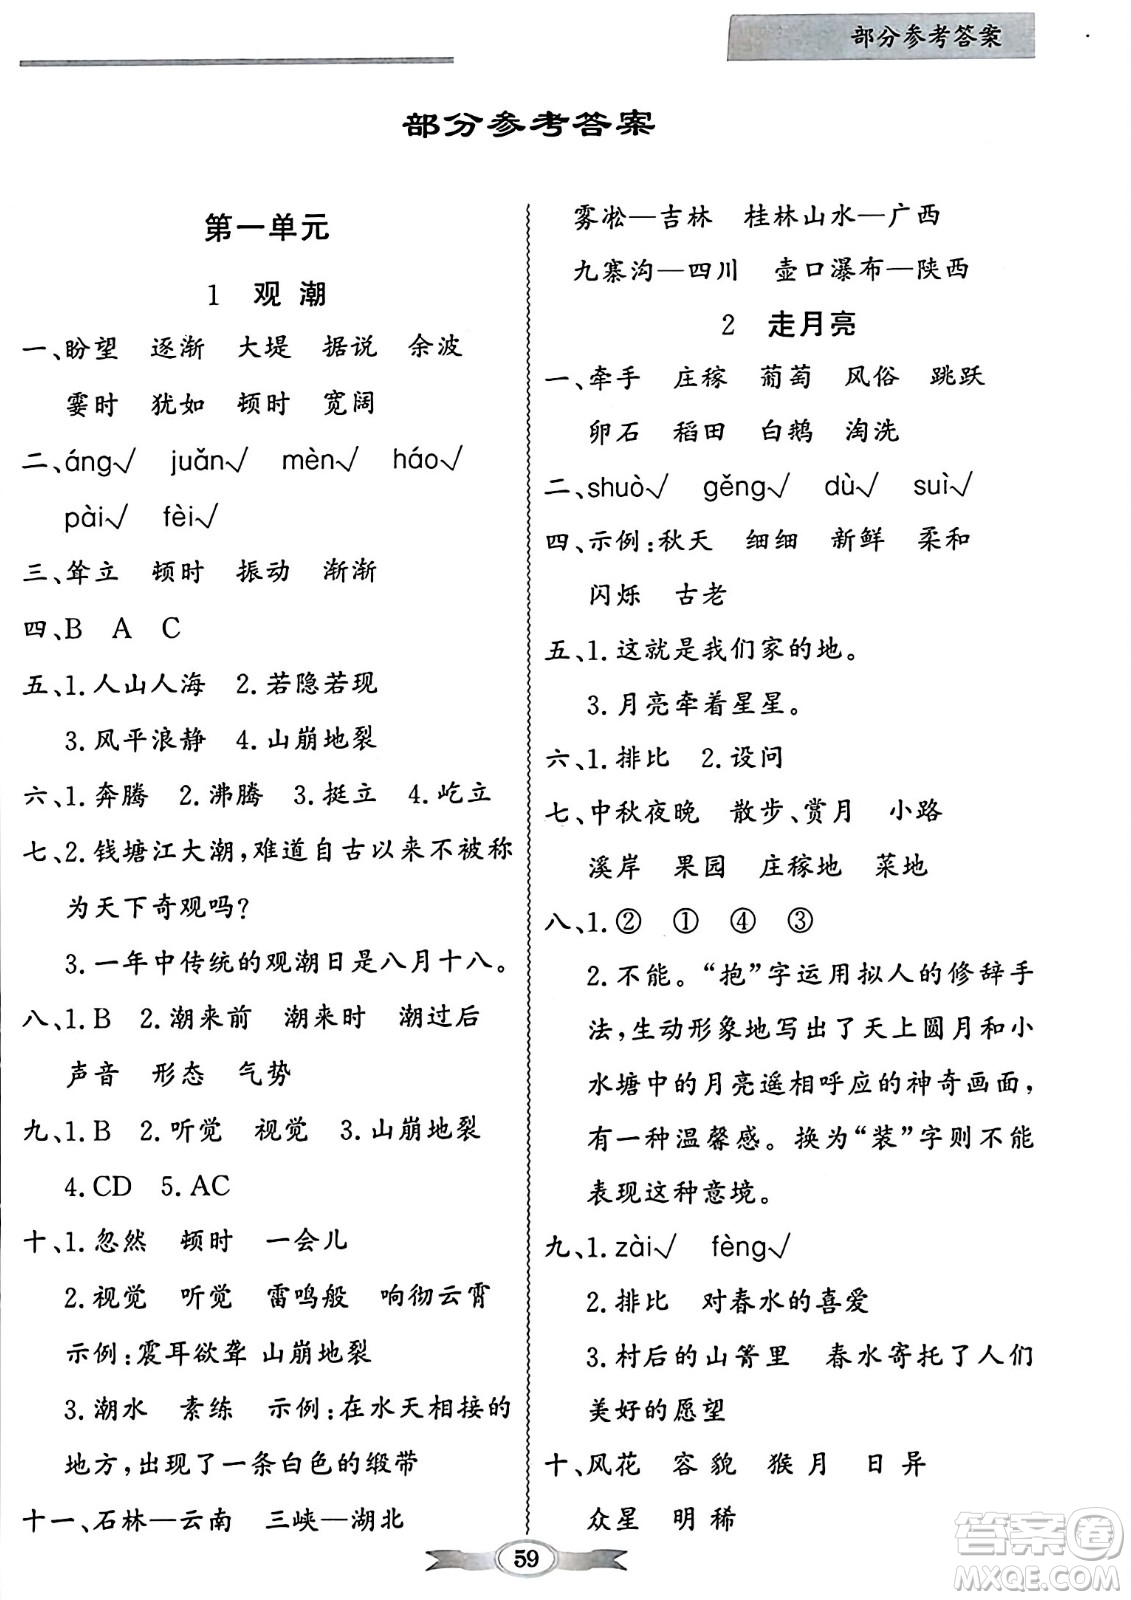 部分参考答案
部分参考答案
第一单元
1 观 潮
一、盼望 逐渐 大堤 据说 余波
霎时 犹如 顿时 宽阔
二、áng√ juǎn√ mèn√ háo√
pài√ fèi√
三、耸立 顿时 振动 渐渐
四、B A C
五、1.人山人海 2.若隐若现
3.风平浪静 4.山崩地裂
六、1.奔腾 2.沸腾 3.挺立 4.屹立
七、2.钱塘江大潮，难道自古以来不被称
为天下奇观吗？
3.一年中传统的观潮日是八月十八。
八、1.B 2.潮来前 潮来时 潮过后
声音 形态 气势
九、1.B 2.听觉 视觉 3.山崩地裂
4.CD 5.AC
十、1.忽然 顿时 一会儿
2.视觉 听觉 雷鸣般 响彻云霄
示例：震耳欲聋 山崩地裂
3.潮水 素练 示例：在水天相接的
地方，出现了一条白色的缎带
十一、石林—云南 三峡—湖北
雾凇—吉林 桂林山水—广西
九寨沟—四川 壶口瀑布—陕西
2 走月亮
一、牵手 庄稼 葡萄 风俗 跳跃
卵石 稻田 白鹅 淘洗
二、shuò√ gěng√ dù√ suì√
四、示例：秋天 细细 新鲜 柔和
闪烁 古老
五、1.这就是我们家的地。
3.月亮牵着星星。
六、1.排比 2.设问
七、中秋夜晚 散步、赏月 小路
溪岸 果园 庄稼地 菜地
八、1.② ① ④ ③
2.不能。“抱”字运用拟人的修辞手
法，生动形象地写出了天上圆月和小
水塘中的月亮遥相呼应的神奇画面，
有一种温馨感。换为“装”字则不能
表现这种意境。
九、1.zài√ fèng√
2.排比 对春水的喜爱
3.村后的山箐里 春水寄托了人们
美好的愿望
十、风花 容貌 猴月 日异
众星 明稀
59
答案圈
MXQE.COM